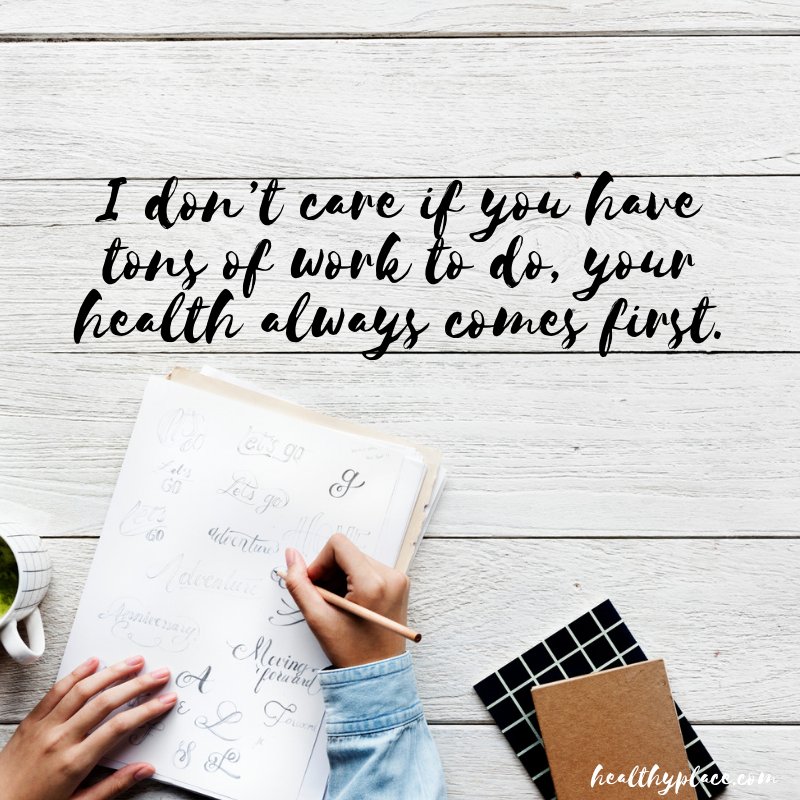 I don't care if you have
tons of work to do, your
health always comes first.
Let's go
g
Let's
GO
Let's go
Let's
GO
Adventure
Adventure
Anniversary
Moving
forward
A
healthyplace.com